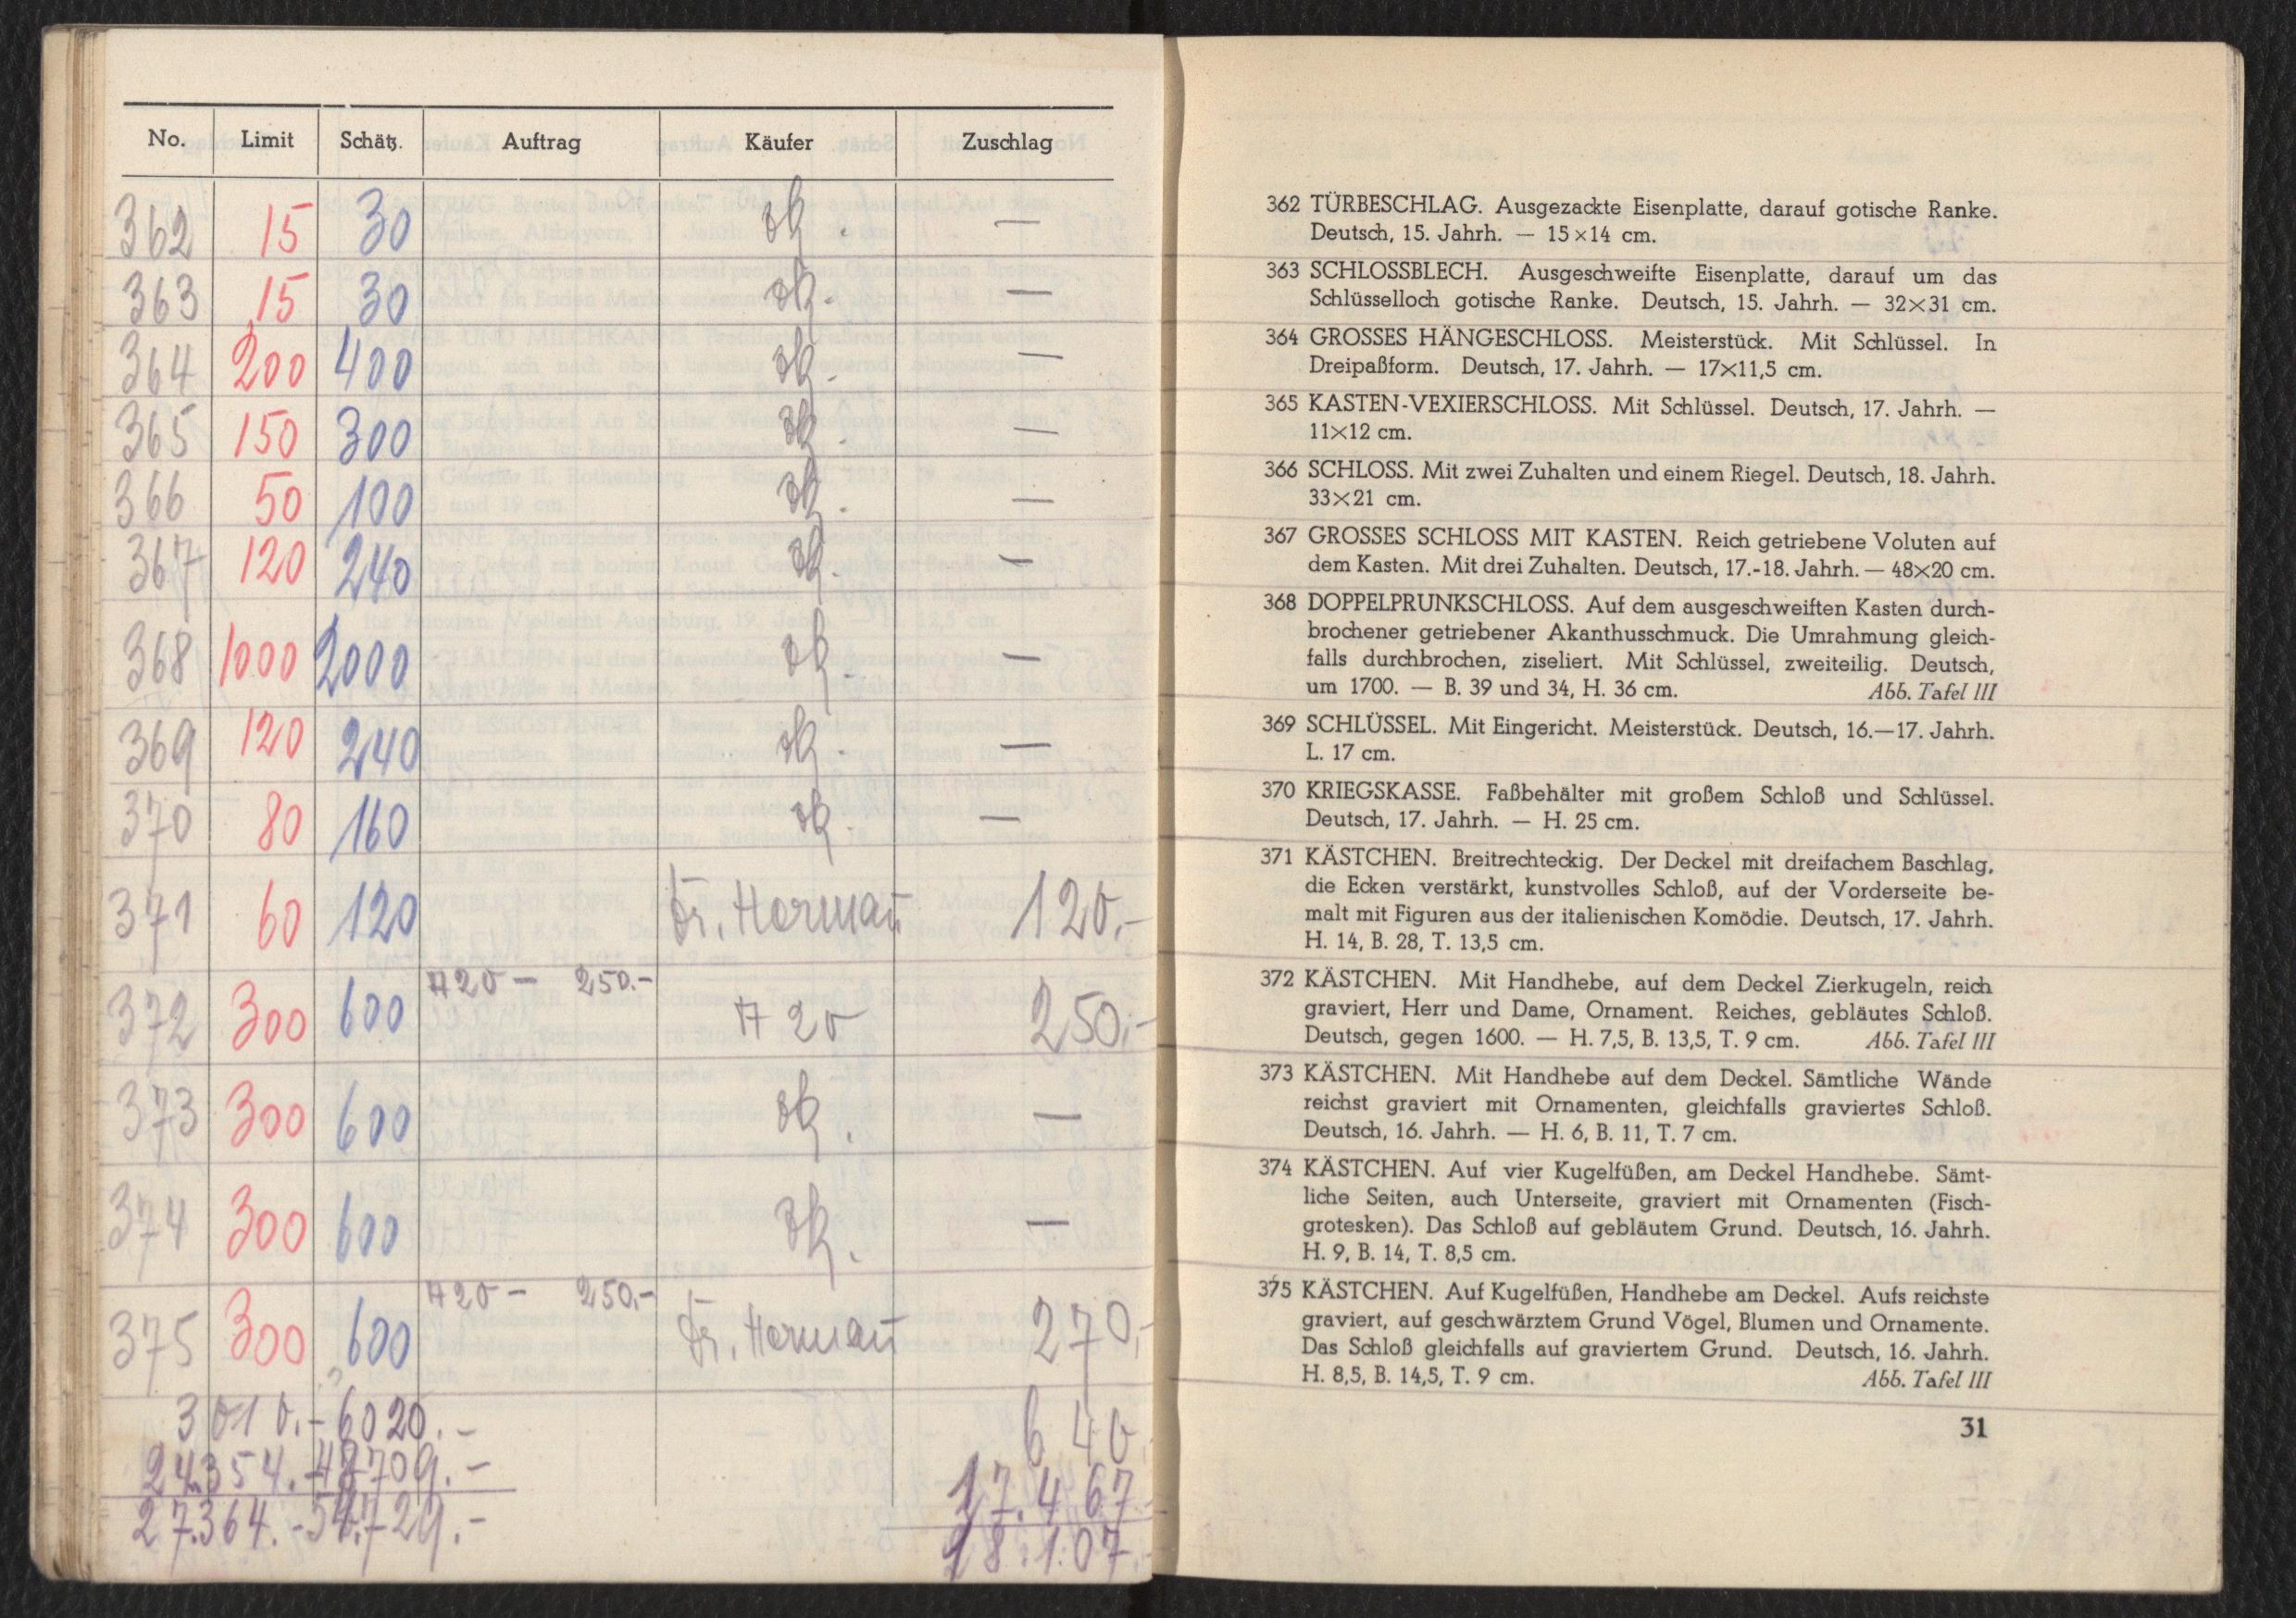 No. Limit Schätz. Auftrag Käufer Zuschlag
362 15 30 —
363 15 30 —
364 200 400 —
365 150 300 —
366 50 100 —
367 120 240 —
368 1000 2000 —
369 120 240 —
370 80 160 —
371 60 120 Dr. Herman̄ 120.-
A 20 — 250.-
372 300 600 A 20 250.-
373 300 600 —
374 300 600 —
A 20 — 250.-
375 300 600 Dr. Herman̄ 270.-
3010.- 6020.- 640
24.354.- 48709.- 17.467
27.364.- 54.729.- 18.107.
362 TÜRBESCHLAG. Ausgezackte Eisenplatte, darauf gotische Ranke.
Deutsch, 15. Jahrh. — 15×14 cm.
363 SCHLOSSBLECH. Ausgeschweifte Eisenplatte, darauf um das
Schlüsselloch gotische Ranke. Deutsch, 15. Jahrh. — 32×31 cm.
364 GROSSES HÄNGESCHLOSS. Meisterstück. Mit Schlüssel. In
Dreipaßform. Deutsch, 17. Jahrh. — 17×11,5 cm.
365 KASTEN-VEXIERSCHLOSS. Mit Schlüssel. Deutsch, 17. Jahrh. —
11×12 cm.
366 SCHLOSS. Mit zwei Zuhalten und einem Riegel. Deutsch, 18. Jahrh.
33×21 cm.
367 GROSSES SCHLOSS MIT KASTEN. Reich getriebene Voluten auf
dem Kasten. Mit drei Zuhalten. Deutsch, 17.-18. Jahrh. — 48×20 cm.
368 DOPPELPRUNKSCHLOSS. Auf dem ausgeschweiften Kasten durch-
brochener getriebener Akanthusschmuck. Die Umrahmung gleich-
falls durchbrochen, ziseliert. Mit Schlüssel, zweiteilig. Deutsch,
um 1700. — B. 39 und 34, H. 36 cm. Abb. Tafel III
369 SCHLÜSSEL. Mit Eingericht. Meisterstück. Deutsch, 16.—17. Jahrh.
L. 17 cm.
370 KRIEGSKASSE. Faßbehälter mit großem Schloß und Schlüssel.
Deutsch, 17. Jahrh. — H. 25 cm.
371 KÄSTCHEN. Breitrechteckig. Der Deckel mit dreifachem Baschlag,
die Ecken verstärkt, kunstvolles Schloß, auf der Vorderseite be-
malt mit Figuren aus der italienischen Komödie. Deutsch, 17. Jahrh.
H. 14, B. 28, T. 13,5 cm.
372 KÄSTCHEN. Mit Handhebe, auf dem Deckel Zierkugeln, reich
graviert, Herr und Dame, Ornament. Reiches, gebläutes Schloß.
Deutsch, gegen 1600. — H. 7,5, B. 13,5, T. 9 cm. Abb. Tafel III
373 KÄSTCHEN. Mit Handhebe auf dem Deckel. Sämtliche Wände
reichst graviert mit Ornamenten, gleichfalls graviertes Schloß.
Deutsch, 16. Jahrh. — H. 6, B. 11, T. 7 cm.
374 KÄSTCHEN. Auf vier Kugelfüßen, am Deckel Handhebe. Sämt-
liche Seiten, auch Unterseite, graviert mit Ornamenten (Fisch-
grotesken). Das Schloß auf gebläutem Grund. Deutsch, 16. Jahrh.
H. 9, B. 14, T. 8,5 cm.
375 KÄSTCHEN. Auf Kugelfüßen, Handhebe am Deckel. Aufs reichste
graviert, auf geschwärztem Grund Vögel, Blumen und Ornamente.
Das Schloß gleichfalls auf graviertem Grund. Deutsch, 16. Jahrh.
H. 8,5, B. 14,5, T. 9 cm. Abb. Tafel III
31